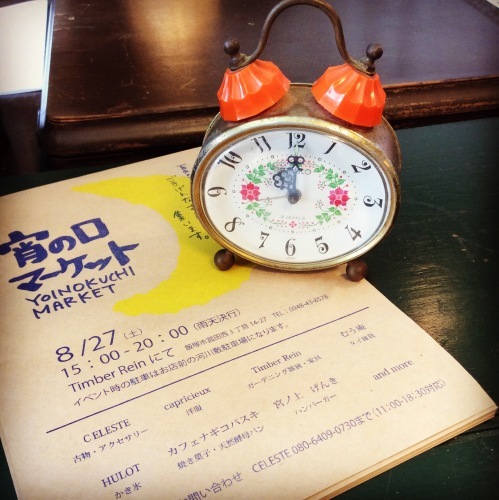 12
1
2
3
4
5
6
7
8
9
10
宵の口
マーケット
YOINOKUCHI
MARKET
集います。
8/27(土)
15:00-20:00(雨天決行)
Timber Rein にて
イベント時の駐車はお店前の河川敷駐車場になります。
CELESTE
古物・アクセサリー
capricieux
洋服
Timber Rein
ガーデニング雑貨・家具
HULOT
かき氷
カフェナギコバスキ
焼き菓子・天然酵母パン
宮ノ上 げんき
ハンバーガー
and more
お問い合わせ CELESTE 080-6409-0730まで(11:00-18:30対応)